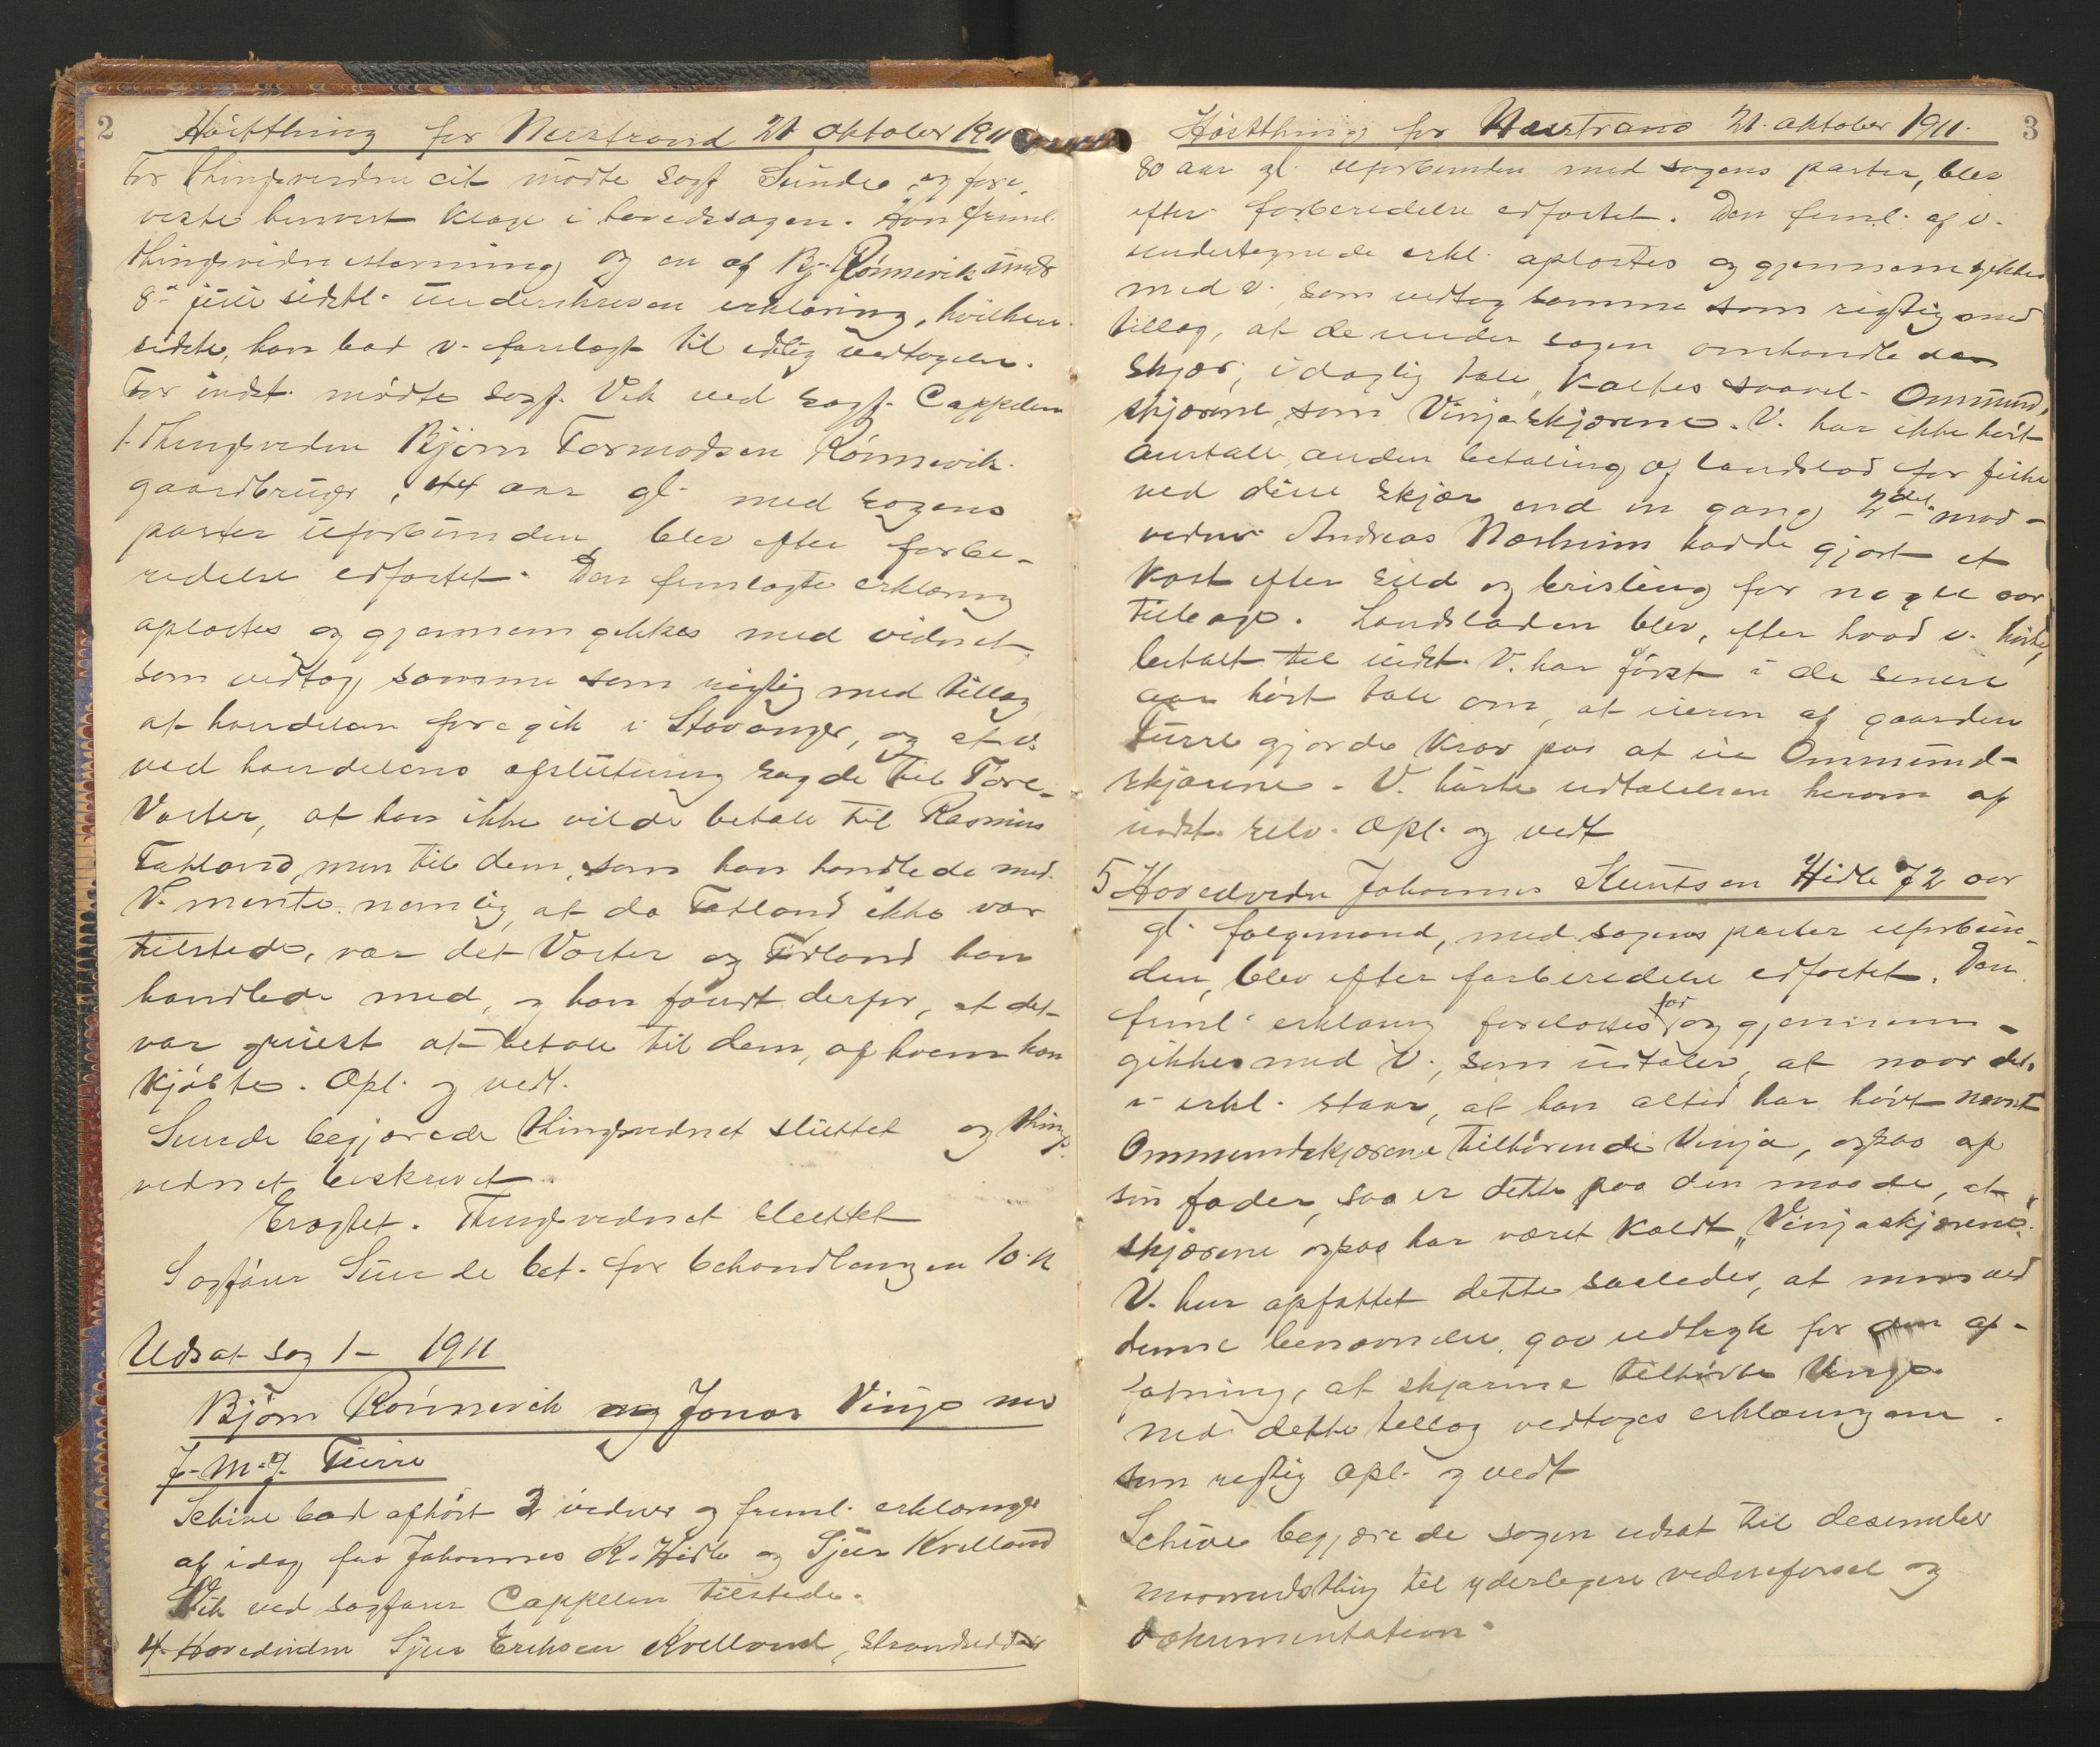 2 Høstthing for Nerstrand 21 oktober 1911
For thingsvidne cit mødte sagf Sunde og fore-
viste beviist klage i hovedsagen. Han freml.
thingsvidnestævning og en af Bj. Rønnevik under
8de juli sidstl. underskreven erklæring, hvilken
sidste, han bad v. forelagt til edelig vedtagelse.
For indst. mødte sagf. Vik ved sagf. Cappelen
1. Thingsvidne Bjørn Tormodsen Rønnevik.
gaardbruger, 44 aar gl. med sagens
parter uforbunden, blev efter forbe-
redelse edfæstet. Den fremlagte erklæring
oplæstes og gjennemgikkes med vidnet,
som vedtog samme som rigtig med tillæg
at handelen foregik i Stavanger, og at v.
ved handelens afslutning sagde til Tore
Vaster, at han ikke vilde betale til Rasmus
Tatland, men til dem, som han handlede med.
V. mente nemlig, at da Tatland ikke var
tilstede, var det Vaster og Tidland han
handlede med, og han fandt derfor, at det
var greiest at betale til dem, af hvem han
kjøbte. Opl. og vedt.
Sunde begjærede thingsvidnet sluttet og things-
vidnet beskrevet.
Eragtet. Thingsvidnet sluttet
Sagfører Sunde bet. for behandlingen 10 k
Udsat sag 1 - 1911
Bjørn Rønnevik og Jonas Vinje mod
J. M. J. Tuire
Schive bad afhørt 2 vidner og freml. erklæringer
af idag fra Johannes K. Hidle og Sjur Kvelland
Vik ved sagfører Cappelen tilstede.
4. Hovedvidne Sjur Eriksen Kvelland, strandsidder
Høstthing for Nerstrand 21. oktober 1911. 3
80 aar gl. uforbunden med sagens parter, blev
efter forberedelse edfæstet. Den freml. af v.
undertegnede erkl. oplæstes og gjennemgikkes
med v. som vedtog samme som rigtig med
tillæg, at de under sagen omhandlede
skjær, i daglig tale kaltes saavel Ommund-
skjærene, som Vinjaskjærene. V. har ikke hørt
omtale anden betaling af landslod for fiske
ved disse skjær end en gang 2det mod-
vidne Andreas Næsheim hadde gjort et
kast efter sild og brisling for nogle aar
tilbage. Landsloden blev, efter hvad v. hørte,
betalt til indst. V. har først i de senere
aar hørt tale om, at eieren af gaarden
Tuire gjorde krav paa at eie Ommund-
skjærene. V. hørte udtalelsen herom af
indst. selv. Opl. og vedt
5 Hovedvidne Johannes Knutsen Hidle 72 aar
gl. følgemand, med sagens parter uforbun-
den, blev efter forberedelse edfæstet. Den
freml. erklæring forelæstes for og gjennem-
gikkes med V., som udtaler, at naar det
i erkl. staar, at han altid har hørt nævnt
Ommundskjærene tilhørende Vinja, ogsaa af
sin fader, saa er dette paa den maade, at
skjærene ogsaa har været kaldt „Vinjaskjærene".
V. har opfattet dette saaledes, at man ved
denne benævnelse gav udtryk for den op-
fatning, at skjærene tilhørte Vinja.
Med dette tillæg vedtoges erklæringen
som rigtig Opl. og vedt
Schive begjærede sagen udsat til desember
maanedsthing til yderligere vidneførsel og
dokumentation.